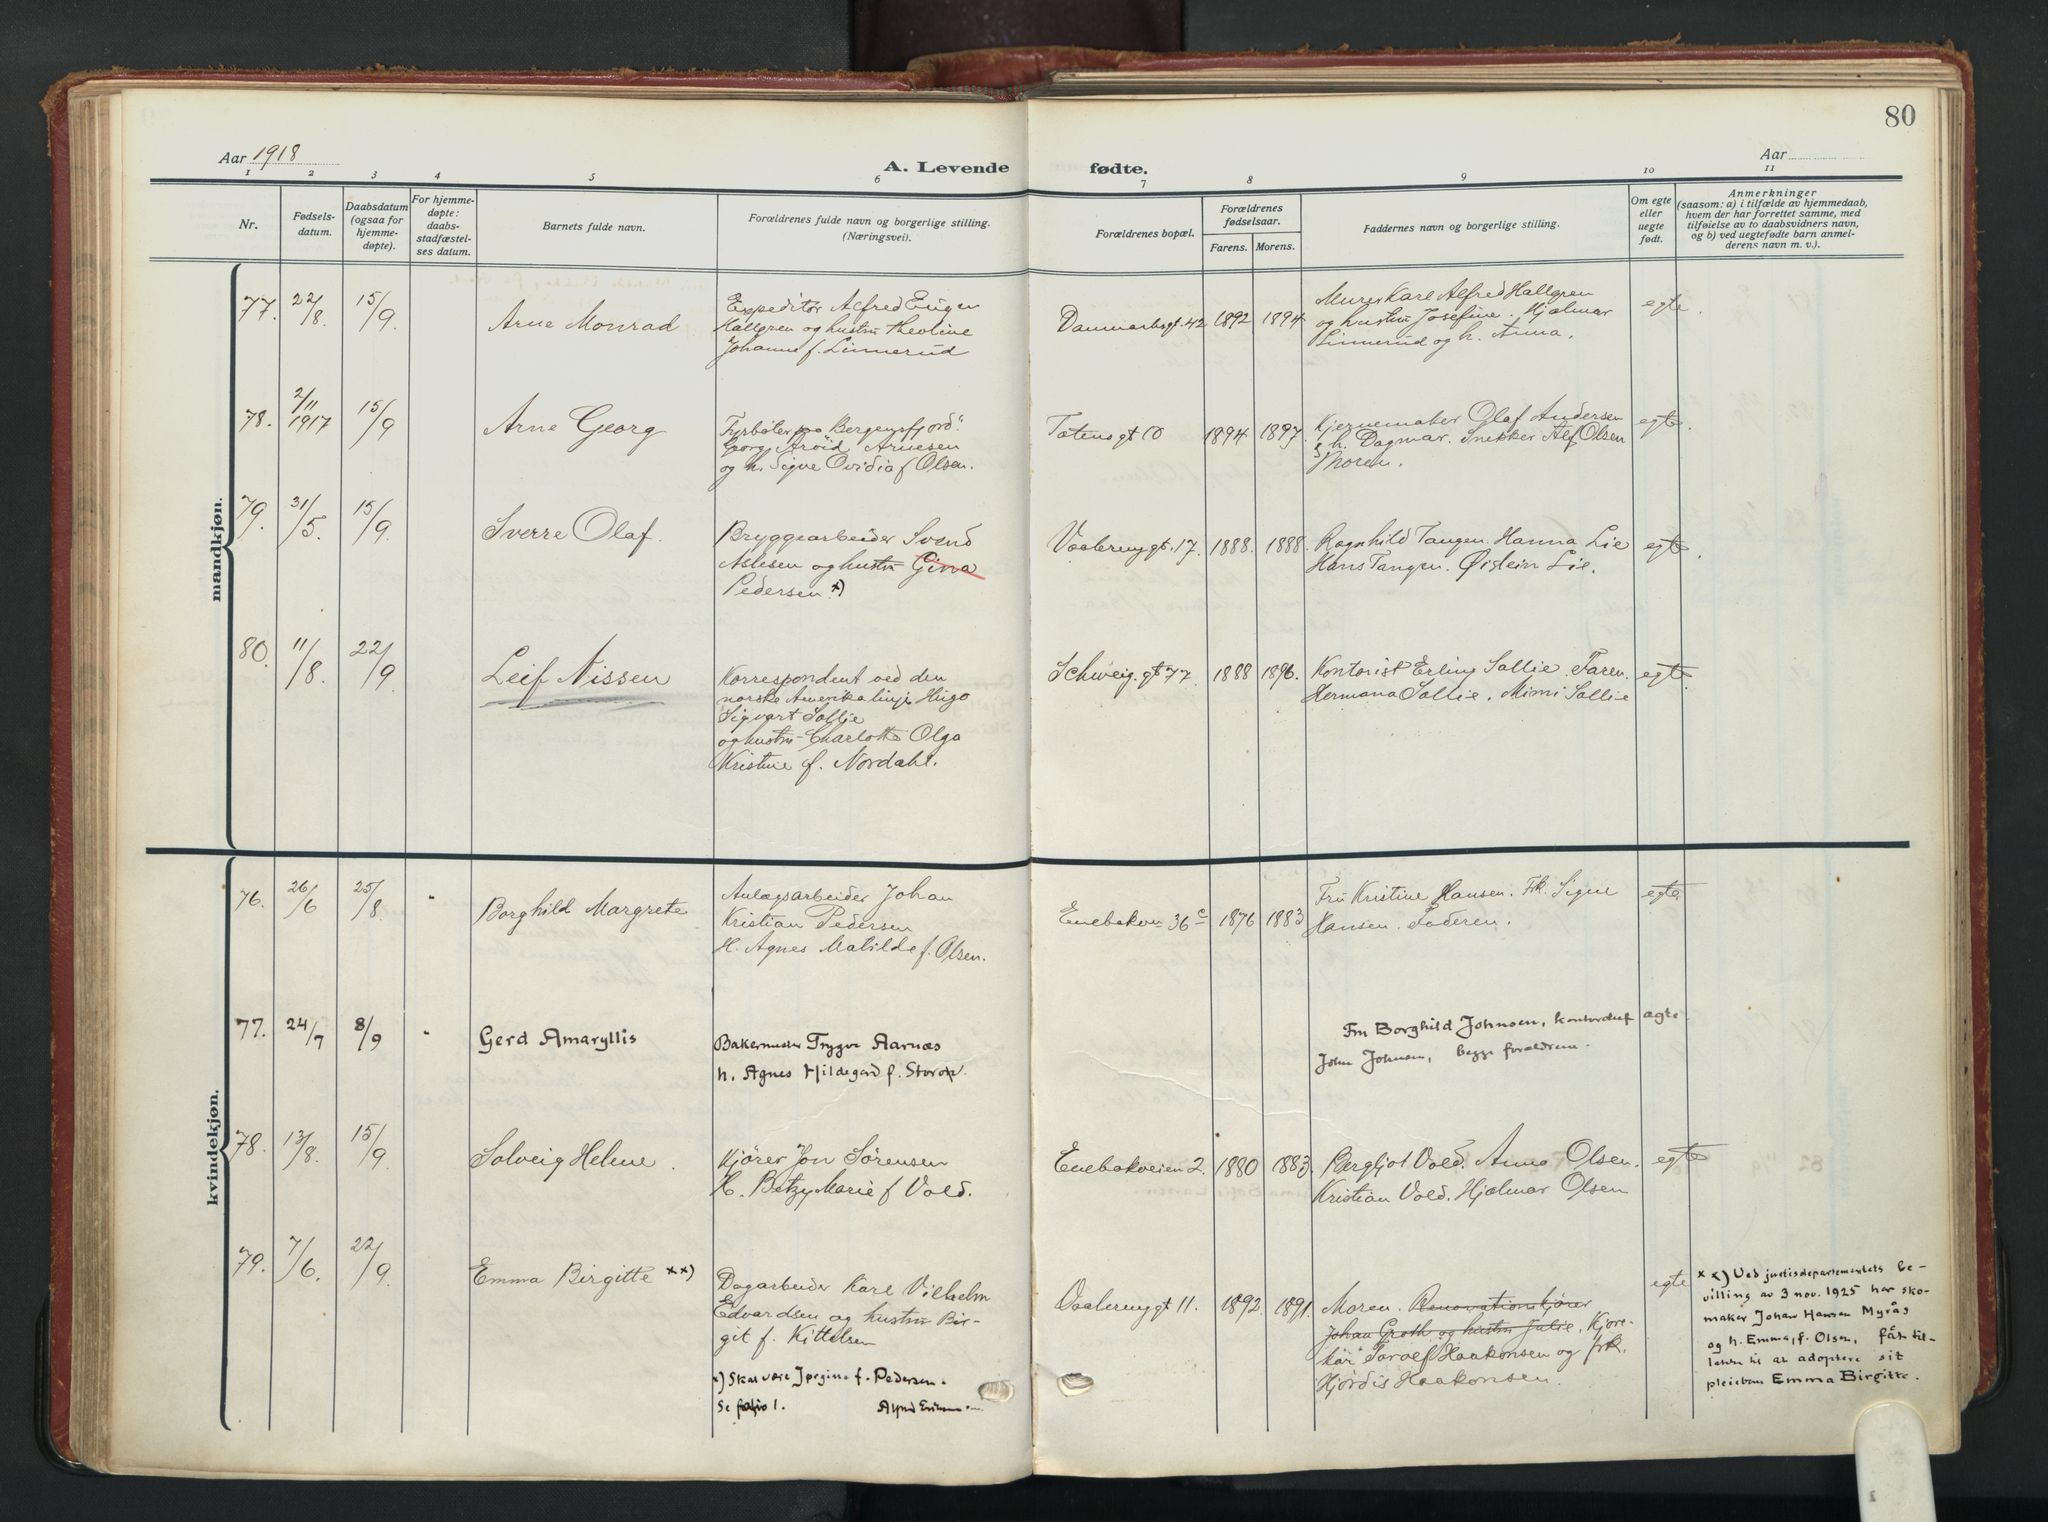 80
Aar 1918
A. Levende
fødte.
Aar
1 2 3 4 5 6 7 8 9 10 11
Nr.
Fødsels-
datum.
Daabsdatum
(ogsaa for
hjemme-
døpte).
For hjemme-
døpte:
daabs-
stadfæstel-
ses datum.
Barnets fulde navn.
Forældrenes fulde navn og borgerlige stilling.
(Næringsvei).
Forældrenes bopæl.
Forældrenes
fødselsaar.
Farens. Morens.
Faddernes navn og borgerlige stilling.
Om egte
eller
uegte
født.
Anmerkninger
(saasom: a) i tilfælde av hjemmedaab,
hvem der har forrettet samme, med
tilføielse av to daabsvidners navn,
og b) ved uegtefødte barn anmel-
derens navn m. v.).
mandkjøn.
77. 22/8. 15/9. Arne Monrad
Expeditør Alfred Eugen
Hallgren og hustru Theoline
Johanne f. Linnerud
Danmarksgt. 42 1892 1894
Murer Karl Alfred Hallgren
og hustru Josefine. Hjalmar
Linnerud og h. Anna.
egte.
78. 2/11 1917 15/9 Arne Georg
Fyrbøter paa "Bergensfjord"
Georg Arvid Arnesen
og h. Signe Ovidia f Olsen.
Totensgt 10 1894 1897.
Kjernemaker Olaf Andersen
h. Dagmar. Snekker Alf Olsen
Moren.
egte.
79. 31/5. 15/9. Sverre Olaf.
Bryggearbeider Svend
Aslesen og hustru Gina
Pedersen x)
Vaalerenggt. 17. 1888. 1888.
Ragnhild Tangen. Hanna Lie
Hans Tangen. Øistein Lie.
egte.
80. 11/8. 22/9. Leif Nissen
Korrespondent ved den
norske Amerikalinje Hugo
Sigvart Sollie
og hustru Charlotte Olga
Kristine f. Nordahl.
Schweig. gt 77. 1888 1896.
Kontorist Erling Sollie. Faren.
Hermana Sollie. Mimi Sollie
egte.
kvindekjøn.
76. 26/6 25/8. " Borghild Margrete
Anlægsarbeider Johan
Kristian Pedersen
H. Agnes Matilde f. Olsen.
Enebakvn 36 c 1876 1883
Fru Kristine Hansen. Frk. Signe
Hansen. Faderen.
egte
77. 24/7 8/9 " Gerd Amaryllis
Bakermester Trygve Aarnæs
h. Agnes Hildegard f.
Fru Borghild Johnsen, kontorchef
John Johnsen, begge forældrene.
ægte.
78. 13/8. 15/9. Solveig Helene.
Kjører Jon Sørensen
H. Betzy Marie f Vold.
Enebakveien 2. 1880 1883.
Bergljot Vold. Anna Olsen.
Kristian Vold. Hjalmar Olsen
egte
79. 7/6. 22/9. Emma Birgitte xx)
Dagarbeider Karl Vilhelm
Edvardsen og hustru Bir-
git f. Kittelsen
Vaalerenggt 11. 1892. 1891.
Moren. Renovationskjører
Johan Groth og hustru Julie. Kjøre-
kar Toralf Haakonsen og frk.
Hjørdis Haakonsen.
egte
x x) Ved justisdepartementets be-
villing av 3 nov. 1925 har sko-
maker Johan Hansen Myrås
og h. Emma, f. Olsen, fåt til-
latelse til at adoptere sit
pleiebarn Emma Birgitte.
x) Skal være Jørgine f. Pedersen.
Se folio 1.